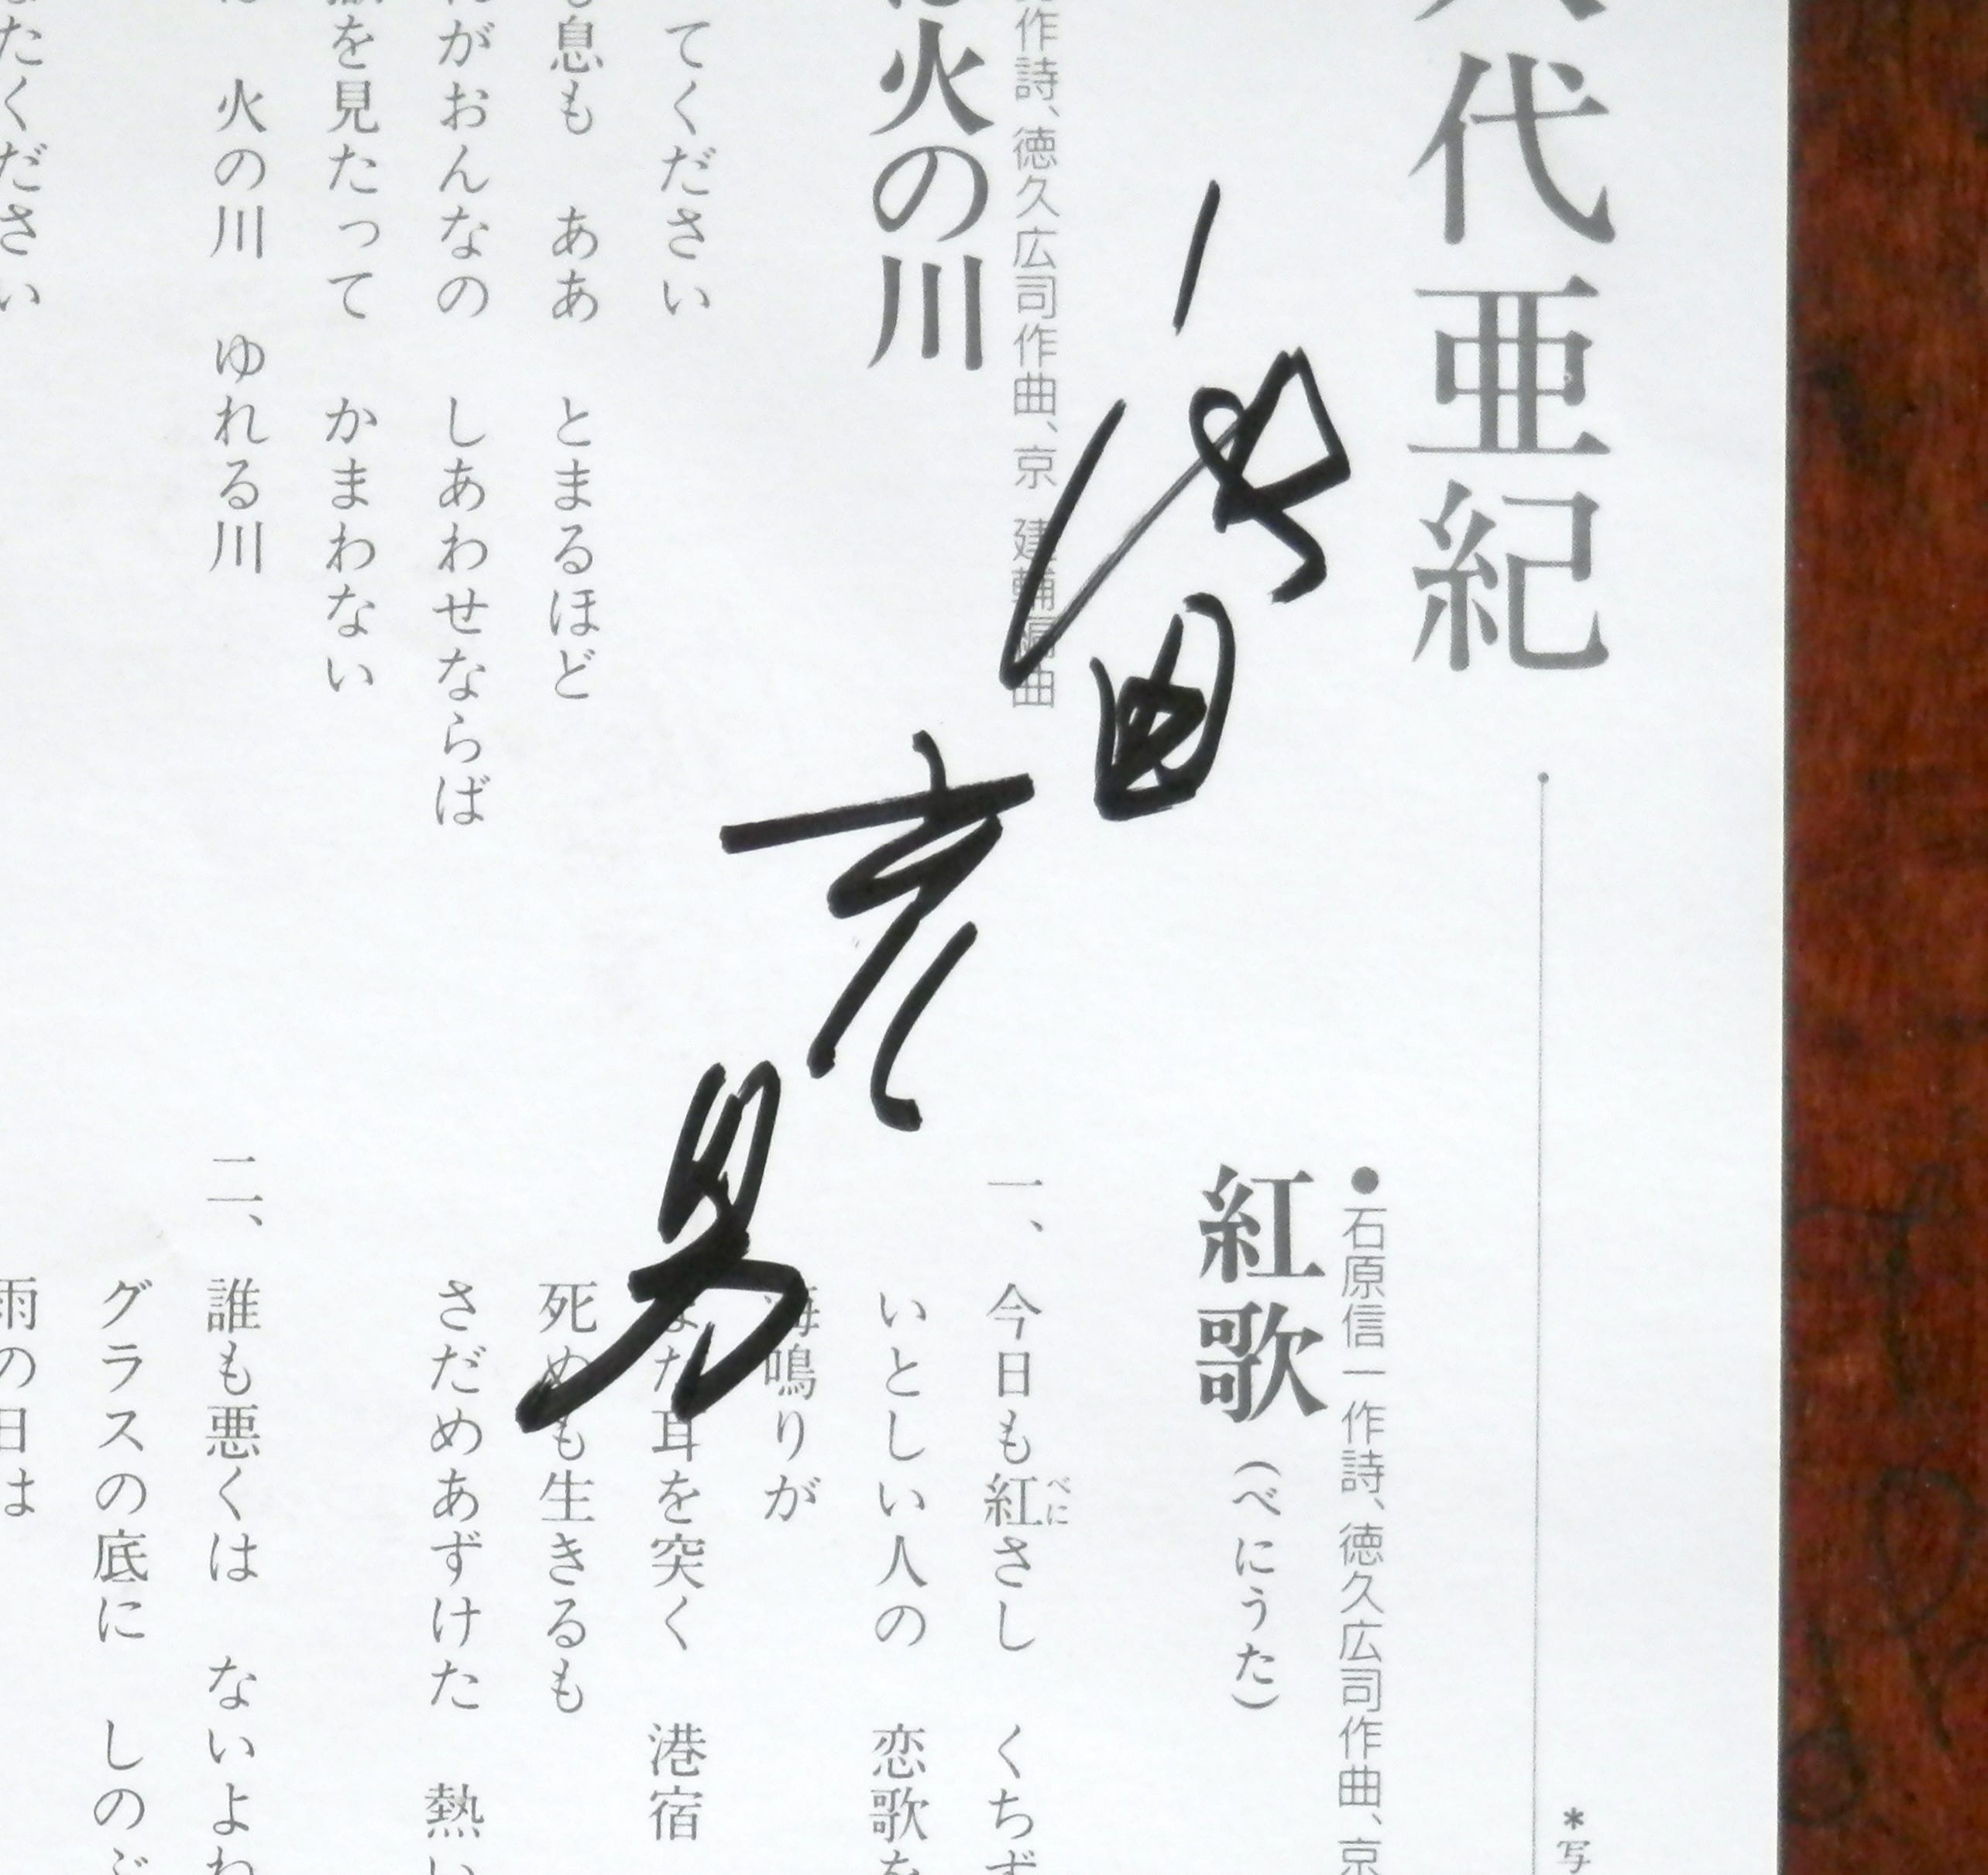 代亜紀
*写
作詩、徳久広司作曲、京 建輔編曲
火の川
てください
息も ああ とまるほど
がおんなの しあわせならば
を見たって かまわない
火の川 ゆれる川
たください
●石原信一作詩、徳久広司作曲、京
紅歌(べにうた)
一、今日も紅さし くちず
べに
いとしい人の 恋歌を
海鳴りが
また耳を突く 港宿
死ぬも生きるも
さだめあずけた 熱い
二、誰も悪くは ないよね
グラスの底に しのぶ
雨の日は